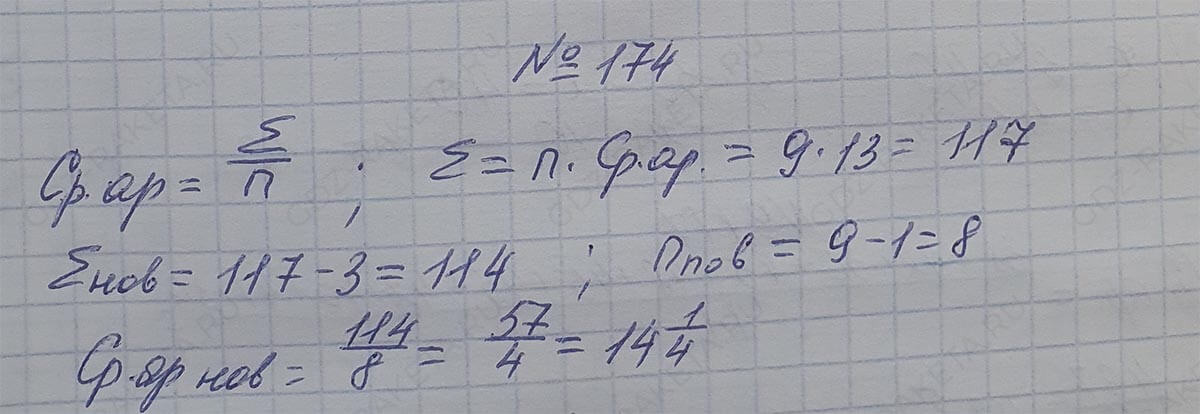 № 174
Ср.ар = Σ/п ; Σ = п · Ср.ар. = 9 · 13 = 117
Σнов = 117 - 3 = 114 ; ппов = 9 - 1 = 8
Ср.ар нов = 114/8 = 57/4 = 14 1/4